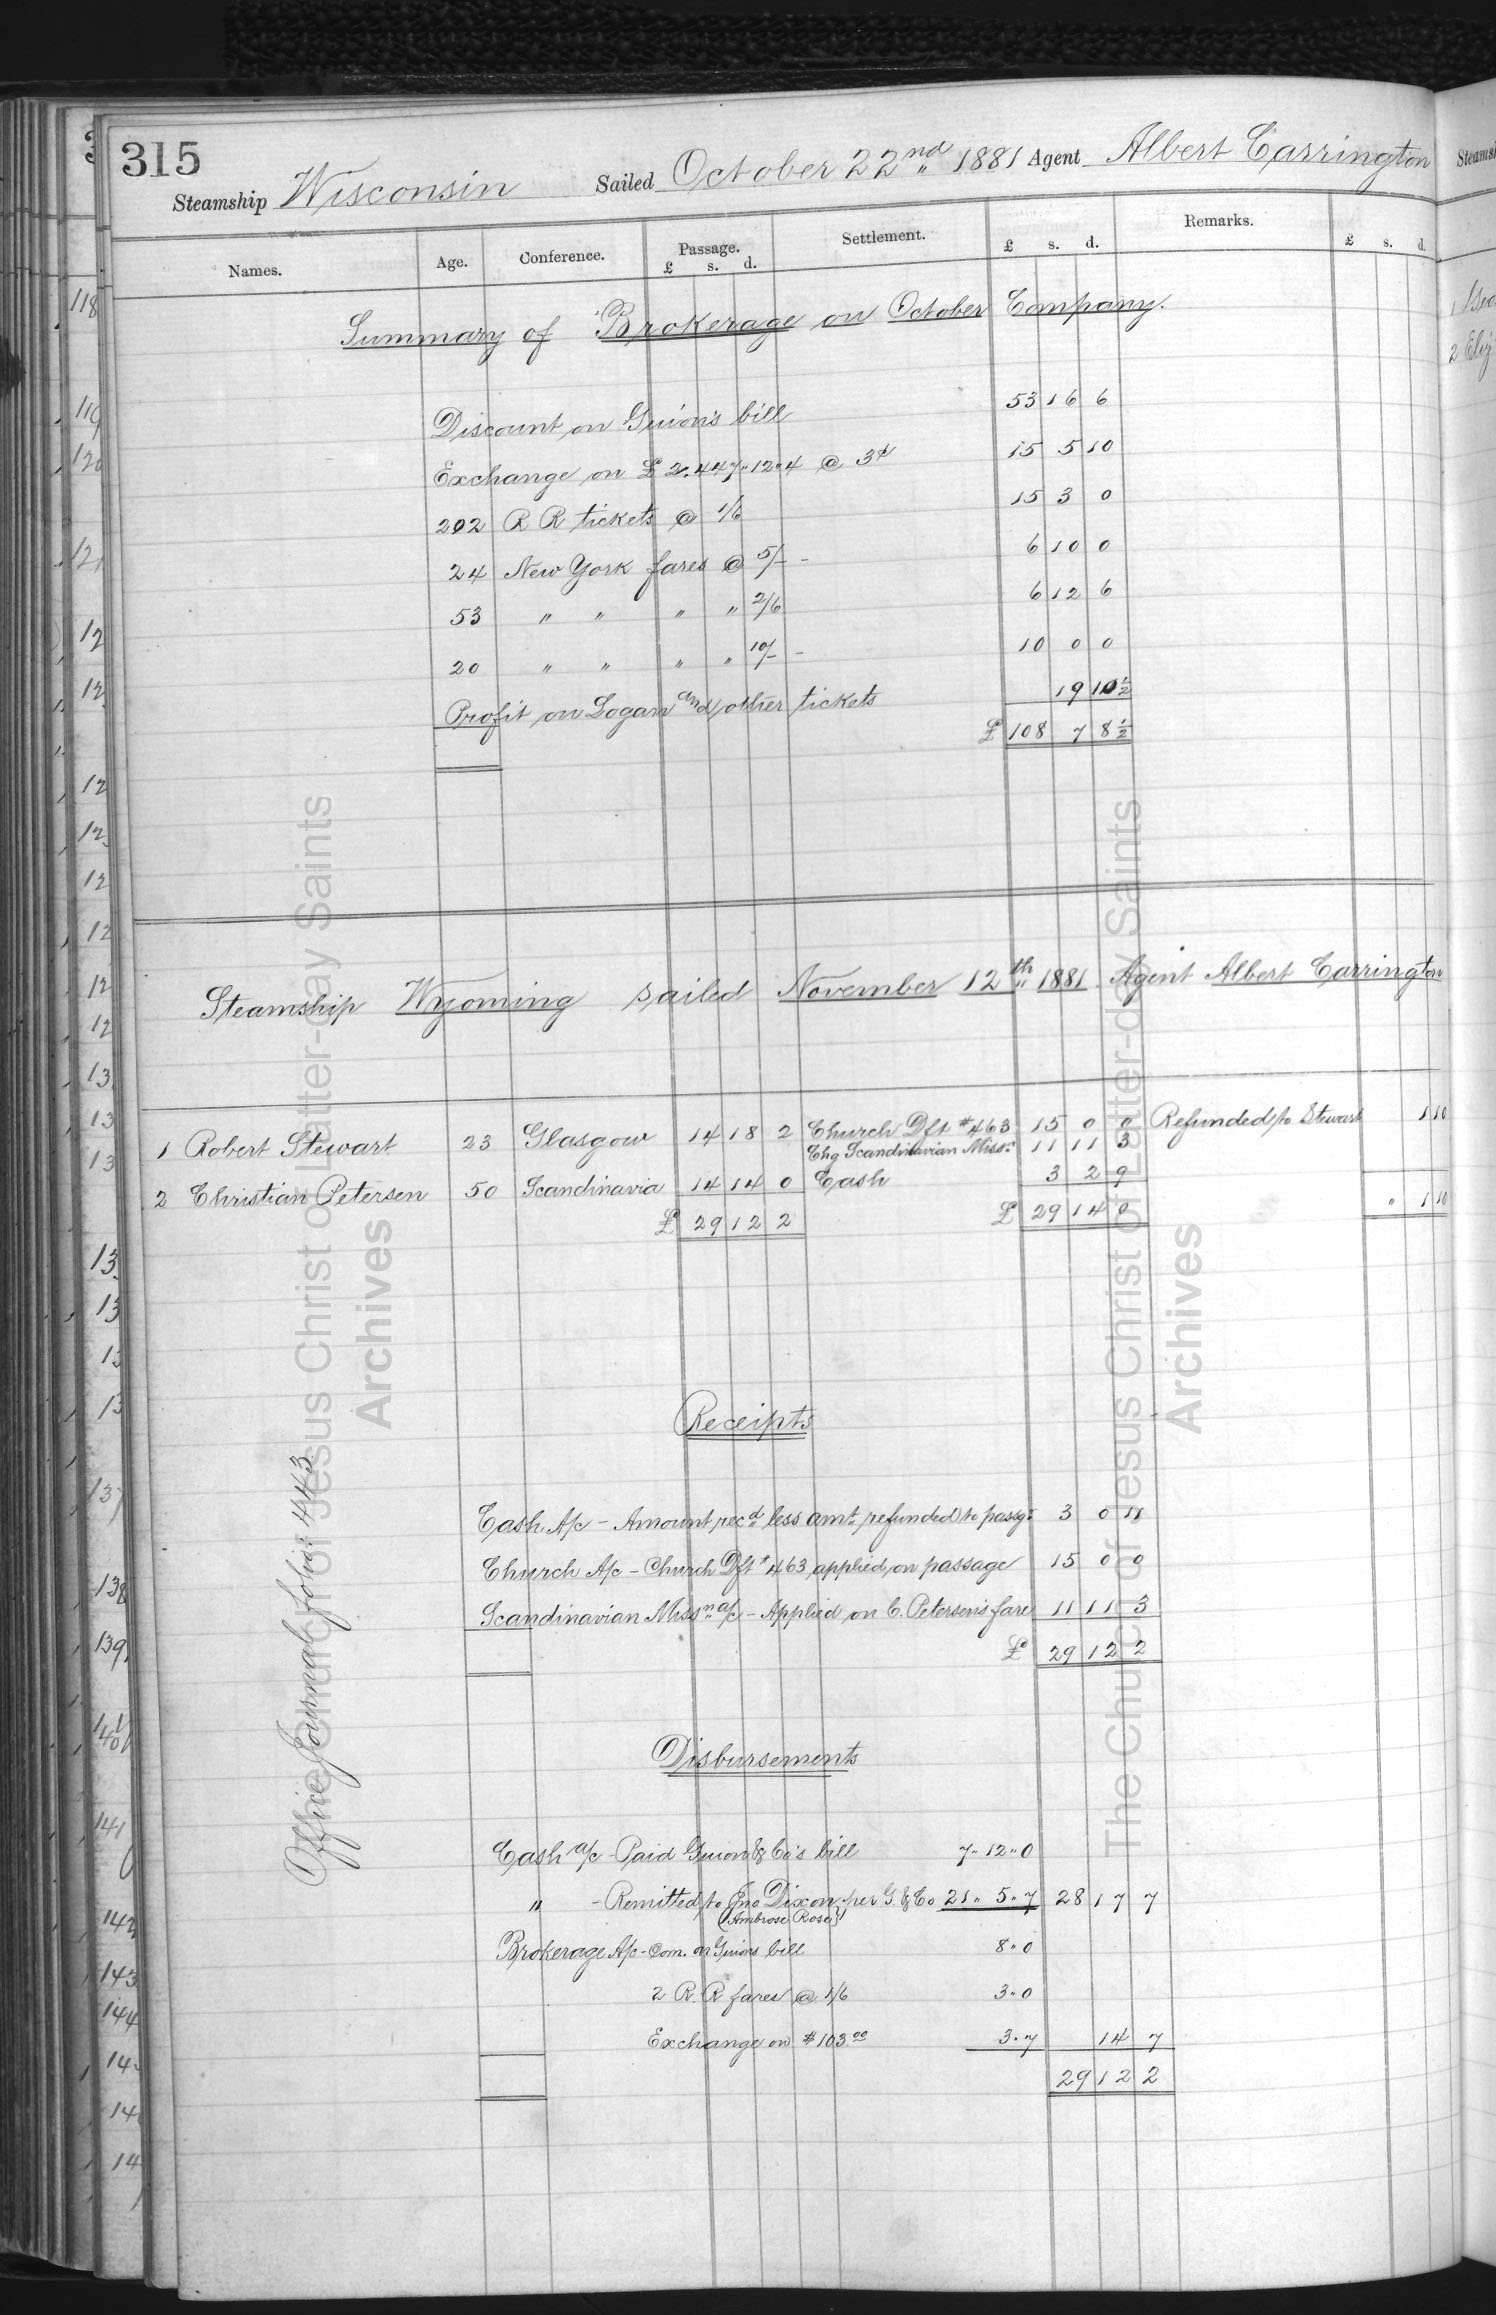 315
Steamship Wisconsin Sailed October 22nd 1881 Agent Albert Carrington
Names. Age. Conference. Passage. £ s. d. Settlement. £ s. d. Remarks. £ s. d.
Summary of Brokerage on October Company.
Discount on Guion's bill 53 16 6
Exchange on £2,447"12"4 @ 3d 15 5 10
202 R R tickets @ 1/6 15 3 0
24 New York fares @ 5/- - 6 10 0
53 " " " " 2/6 6 12 6
20 " " " " 10/- - 10 0 0
Profit on Logan and other tickets 19 10½
£ 108 7 8½
Steamship Wyoming sailed November 12th 1881. Agent Albert Carrington
1 Robert Stewart 23 Glasgow 14 18 2 Church Dft #463 15 0 0 Refunded to Stewart 1 10
Chg Scandinavian Missn 11 11 3
2 Christian Petersen 50 Scandinavia 14 14 0 Cash 3 2 9
£ 29 12 2 £ 29 14 0 " 1 10
Receipts
Cash A/c - Amount recd less amt refunded to passgr 3 0 11
Church A/c - Church Dft #463 applied on passage 15 0 0
Scandinavian Missn a/c - Applied on C. Petersen's fare 11 11 3
£ 29 12 2
Office Journal folio 443
Disbursements
Cash a/c - Paid Guion & Co's bill 7"12"0
" - Remitted to Jno Dixon per G. & Co 21"5"7 28 17 7
(Ambrose Rose)
Brokerage A/c - Com. on Guions bill 8"0
2 R. R fares @ 1/6 3"0
Exchange on $103.00 3"7 14 7
29 12 2
The Church of Jesus Christ of Latter-day Saints
Archives
The Church of Jesus Christ of Latter-day Saints
Archives